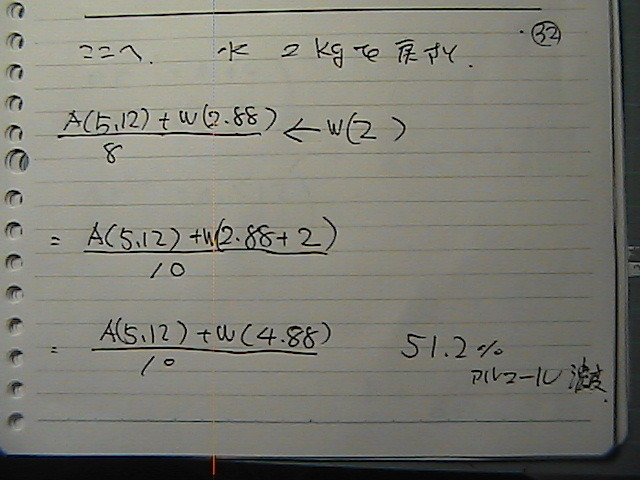 ㉜
ここへ. 水 2kgを戻す.
A(5,12) + W(2.88) ← W(2)
8
= A(5,12) + W(2.88+2)
10
= A(5,12) + W(4.88)
10
51.2%
アルコール濃度.